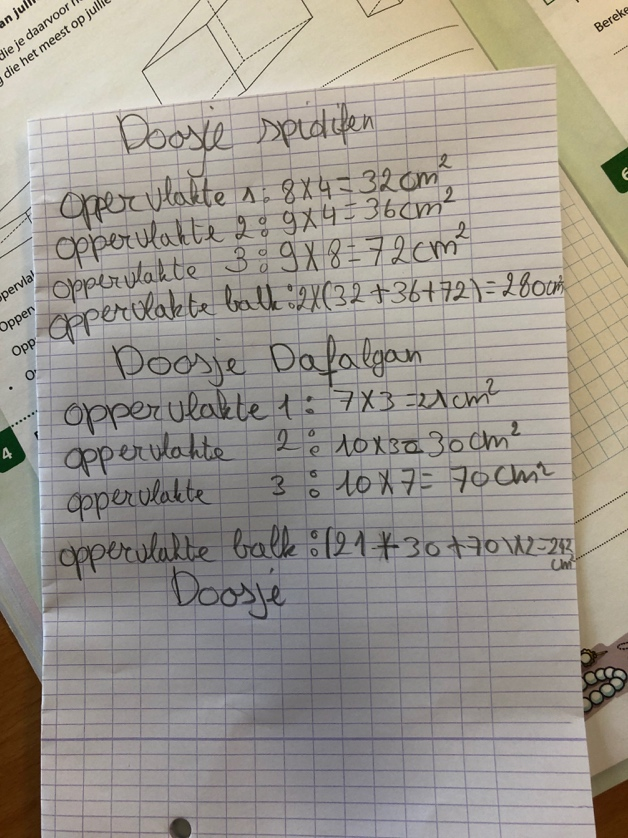 an julli
die je daarvoor
die het meest op jullie
Bereke
Doosje spidifen
oppervlakte 1: 8x4=32cm²
oppervlakte 2: 9x4=36cm²
oppervlakte 3: 9x8=72cm²
oppervlakte balk: 2x(32+36+72)=280cm
Doosje Dafalgan
oppervlakte 1: 7x3=21cm²
oppervlakte 2: 10x3=30cm²
oppervlakte 3: 10x7= 70cm²
oppervlakte balk: (21+30+70)x2=242
cm²
Doosje
pervla
Oppen
Opp
4
6